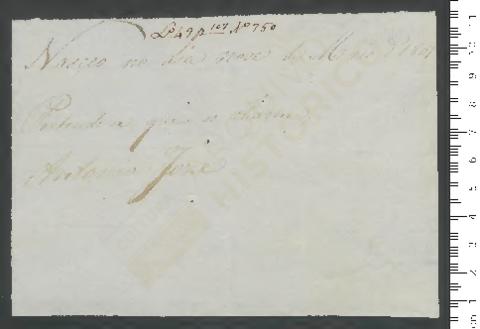 Lº 49 p 107 Nº 750
Nasceo no dia nove de Março d 1801
Pertende se que se chame
Antonio Joze
HISTORICO